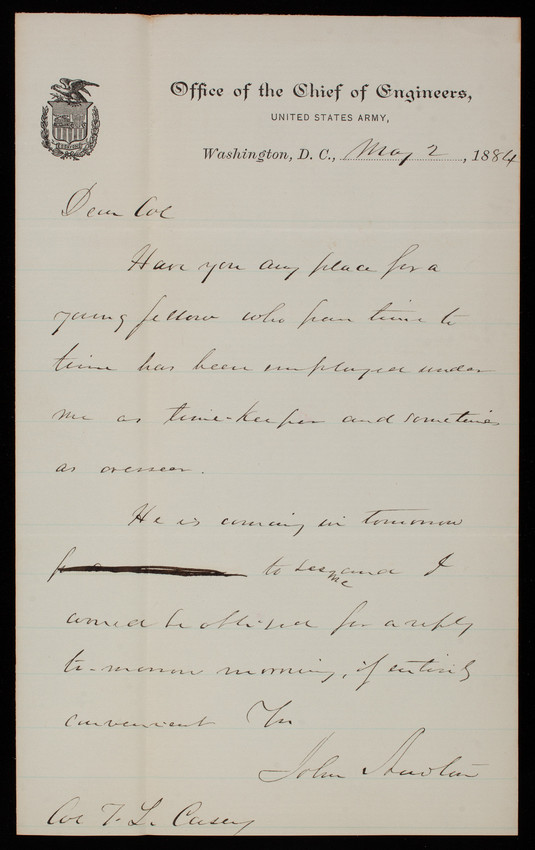 Office of the Chief of Engineers,
UNITED STATES ARMY,
Washington, D. C., May 2, 1884
Dear Col
Have you any place for a
young fellow who from time to
time has been employed under
me as time-keeper and sometimes
as overseer.
He is coming in tomorrow
to see me and I
would be obliged for a reply
to-morrow morning, if entirely
convenient Yrs
John Newton
Col T. L. Casey